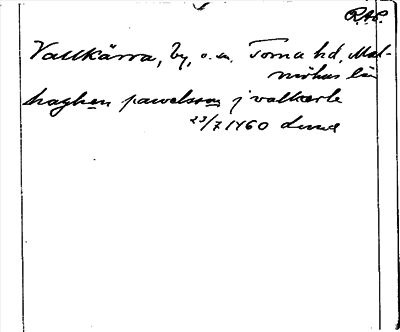 RAP.
Vallkärra, by, o. sn. Torna hd, Mal-
möhus län
haghen pawelsson j valkerle
23/7 1460 Lund